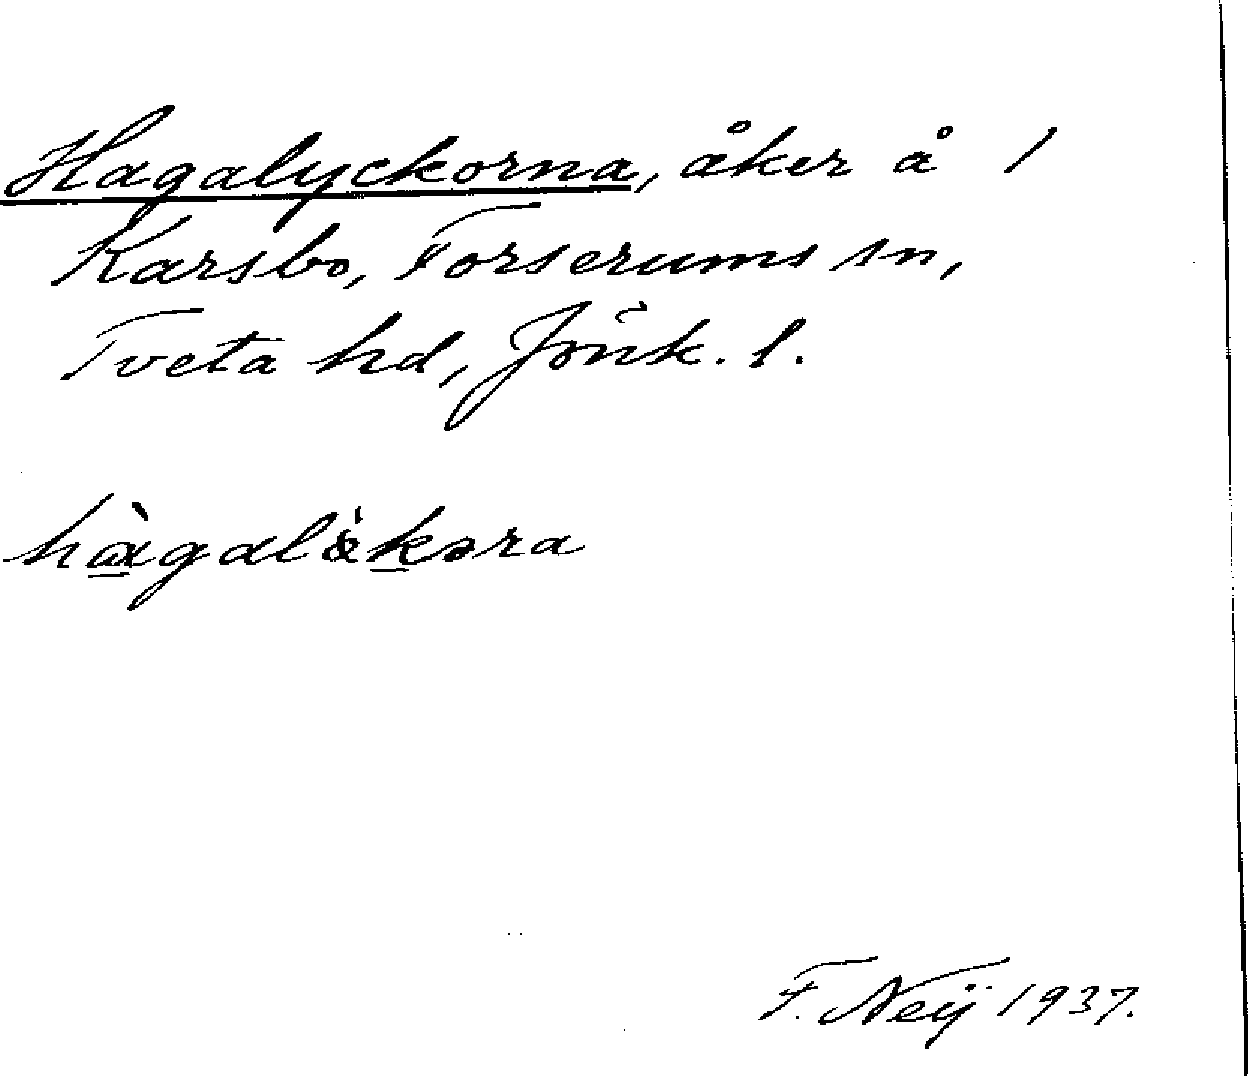 Hagalyckorna, åker å 1
Karsbo, Forserums sn,
Tveta hd, Jönk. l.
F. Neij 1937.